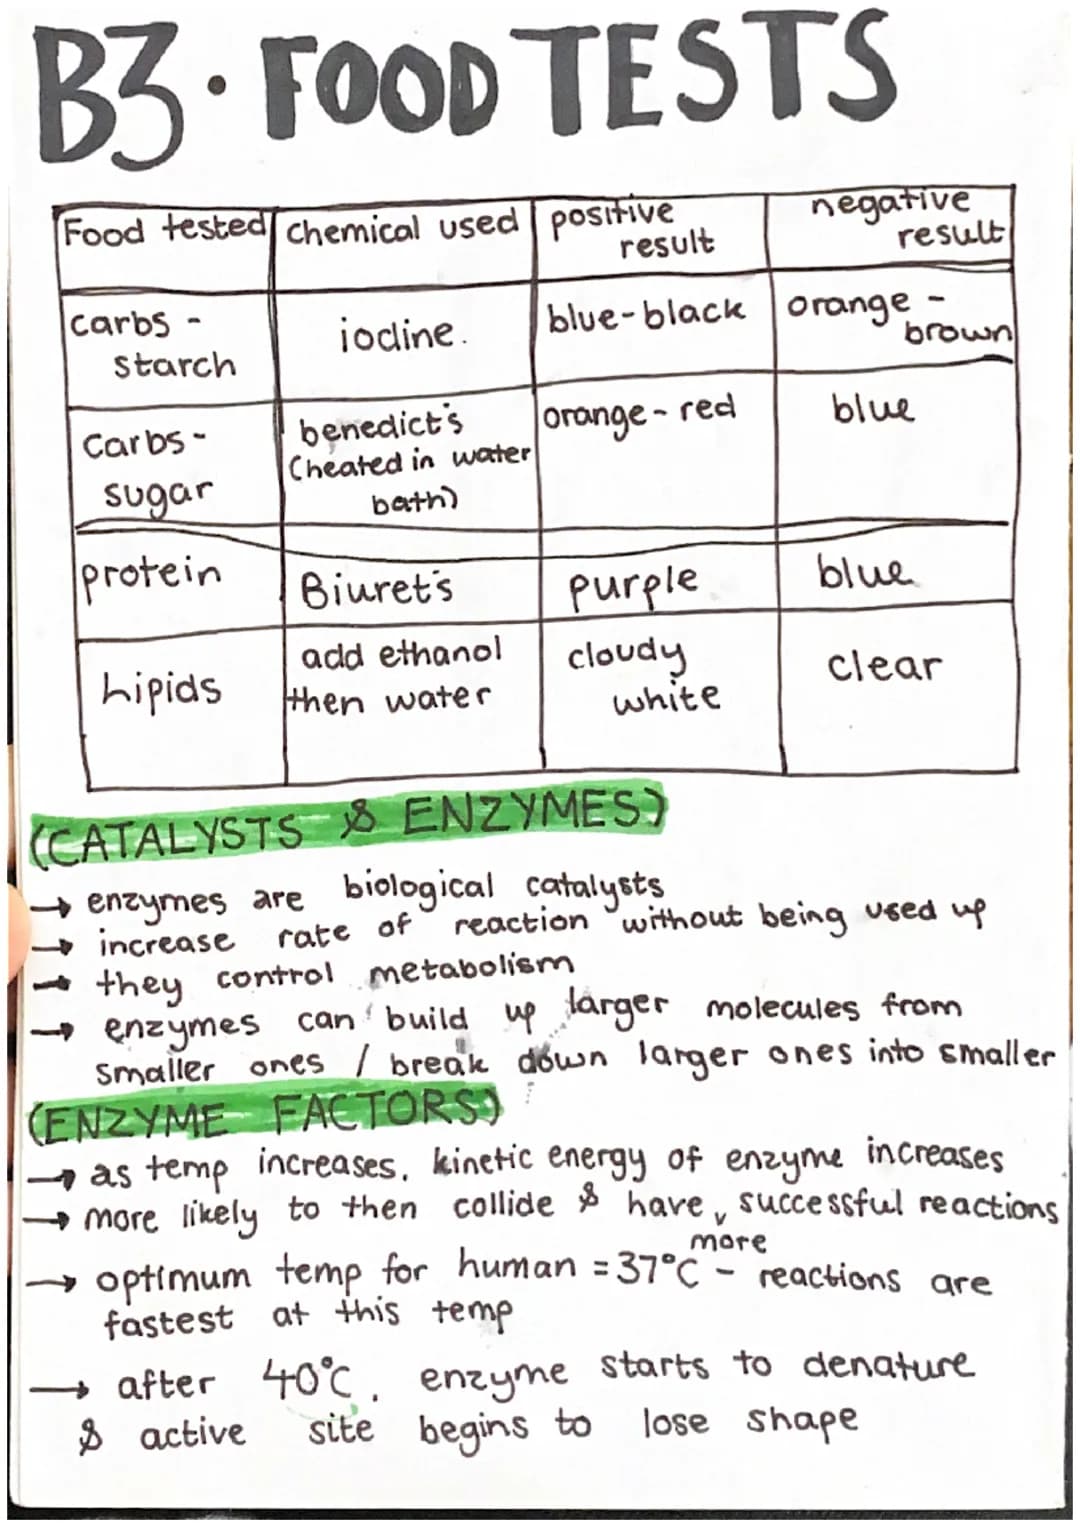 B3 · FOOD TESTS
Food tested chemical used positive result negative result
carbs - starch iodine. blue-black orange - brown
carbs - sugar benedict's (heated in water bath) orange - red blue
protein Biuret's purple blue
Lipids add ethanol then water cloudy white clear
(CATALYSTS & ENZYMES)
→ enzymes are biological catalysts
→ increase rate of reaction without being used up
→ they control metabolism
→ enzymes can build up larger molecules from
smaller ones / break down larger ones into smaller
(ENZYME FACTORS)
→ as temp increases, kinetic energy of enzyme increases
→ more likely to then collide & have more successful reactions
→ optimum temp for human = 37°C - reactions are
fastest at this temp
→ after 40°C, enzyme starts to denature
& active site begins to lose shape